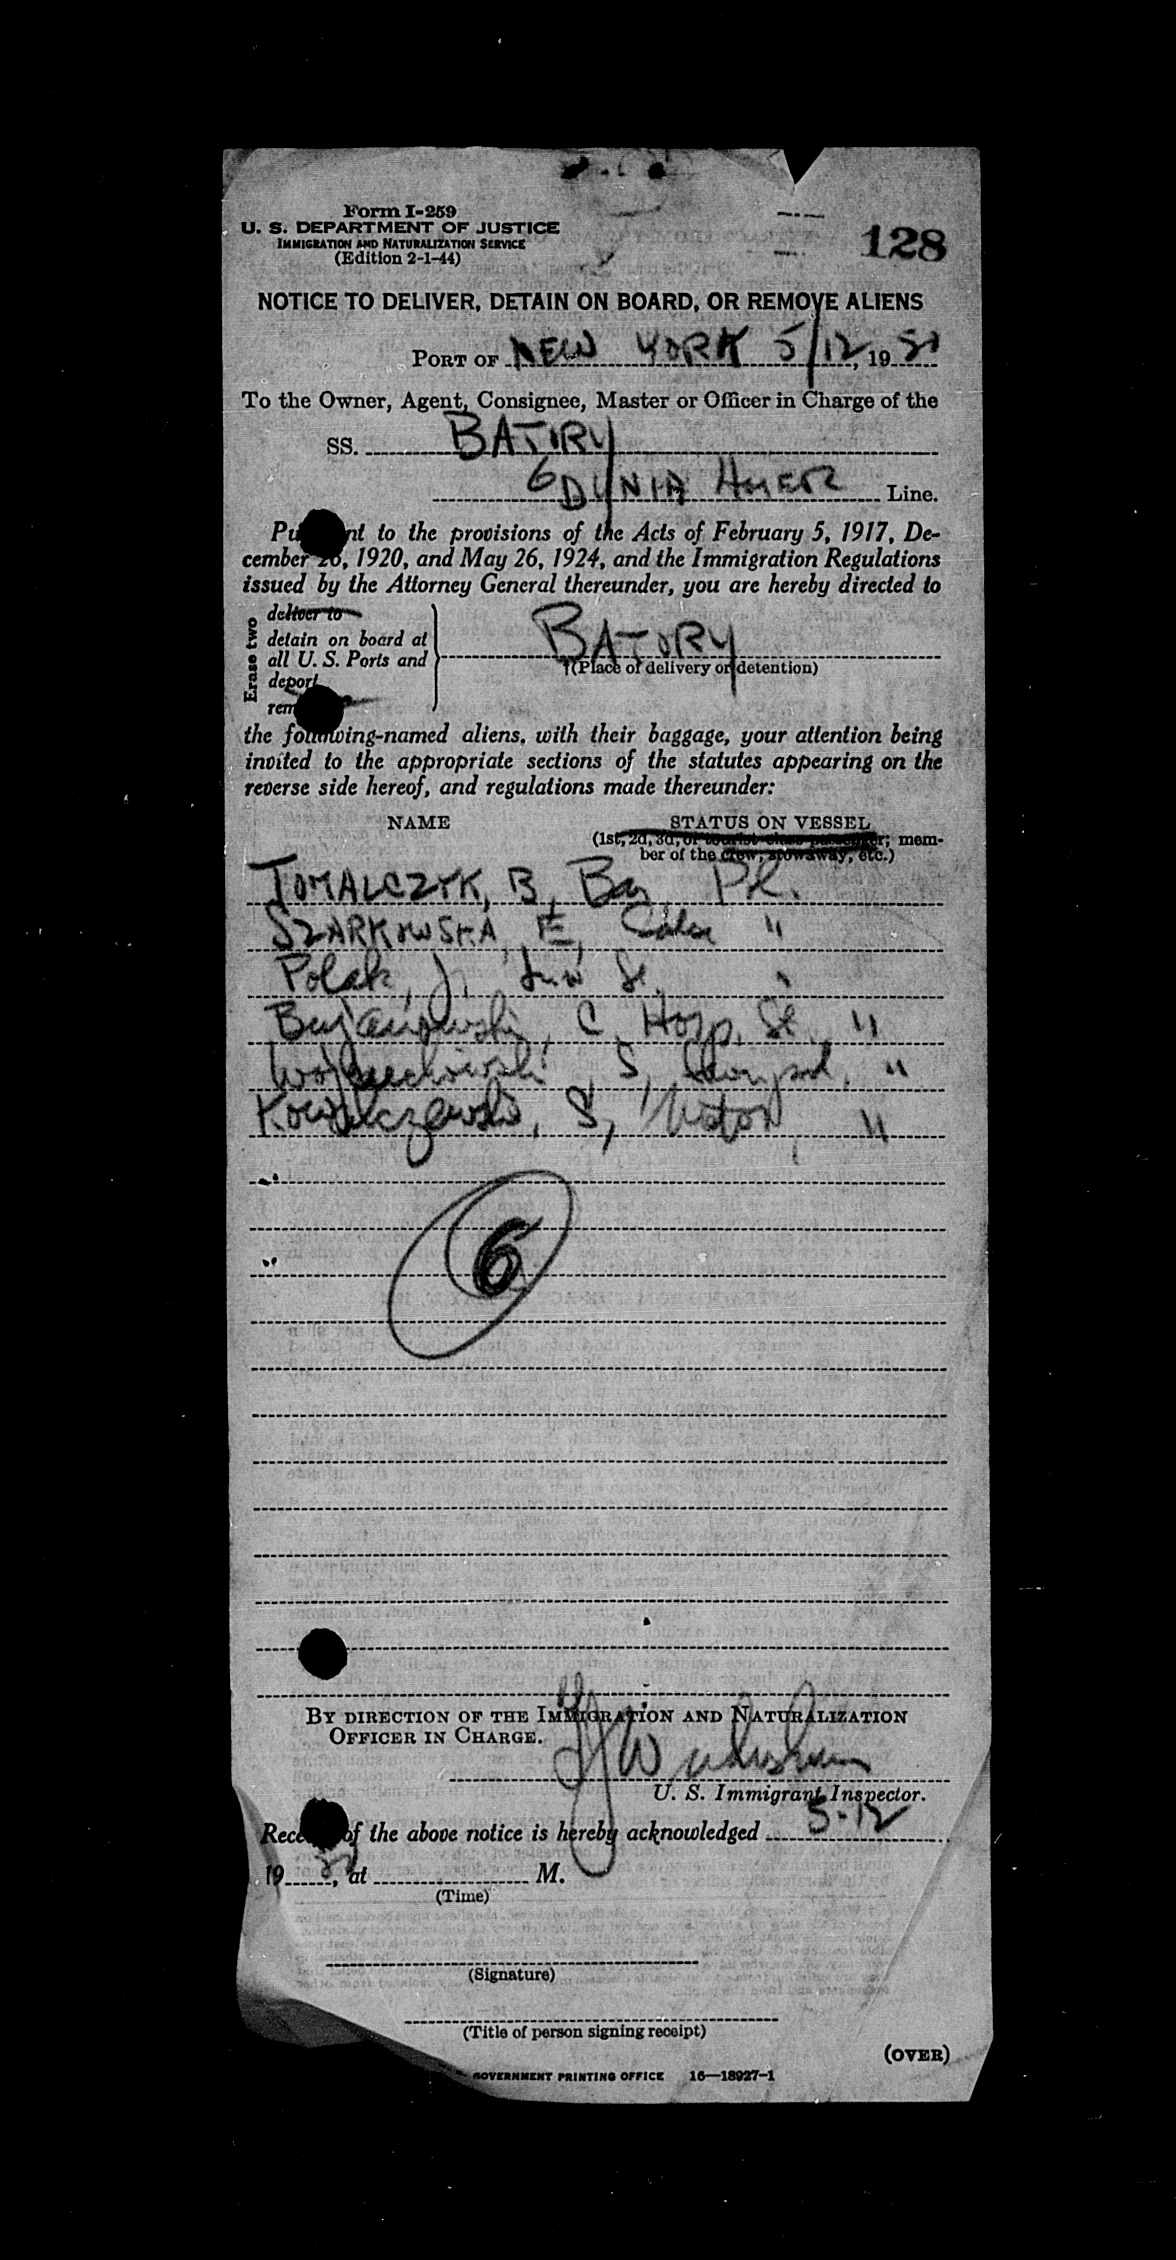 Form I-259
U. S. DEPARTMENT OF JUSTICE
IMMIGRATION AND NATURALIZATION SERVICE
(Edition 2-1-44)
128
NOTICE TO DELIVER, DETAIN ON BOARD, OR REMOVE ALIENS
PORT OF NEW YORK 5/12, 19
To the Owner, Agent, Consignee, Master or Officer in Charge of the
SS. BATORY
GDYNIA AMER Line.
Pu nt to the provisions of the Acts of February 5, 1917, De-
cember 26, 1920, and May 26, 1924, and the Immigration Regulations
issued by the Attorney General thereunder, you are hereby directed to
Erase two
deliver to
detain on board at
all U. S. Ports and
deport
rem
BATORY
(Place of delivery or detention)
the following-named aliens, with their baggage, your attention being
invited to the appropriate sections of the statutes appearing on the
reverse side hereof, and regulations made thereunder:
NAME
STATUS ON VESSEL
(1st, 2d, 3d, or tourist class passenger; mem-
ber of the crew, stowaway, etc.)
TOMALCZYK, B, Pl.
SZARKOWSKA, E, "
Polak, J, St. "
Bujanowski, C, Hosp. St. "
Wojciechowski, S, "
Kowalczewski, S, "
6
BY DIRECTION OF THE IMMIGRATION AND NATURALIZATION
OFFICER IN CHARGE.
U. S. Immigrant Inspector.
Rece of the above notice is hereby acknowledged 5-12
19 , at M.
(Time)
(Signature)
(Title of person signing receipt)
(OVER)
GOVERNMENT PRINTING OFFICE 16—18927-1